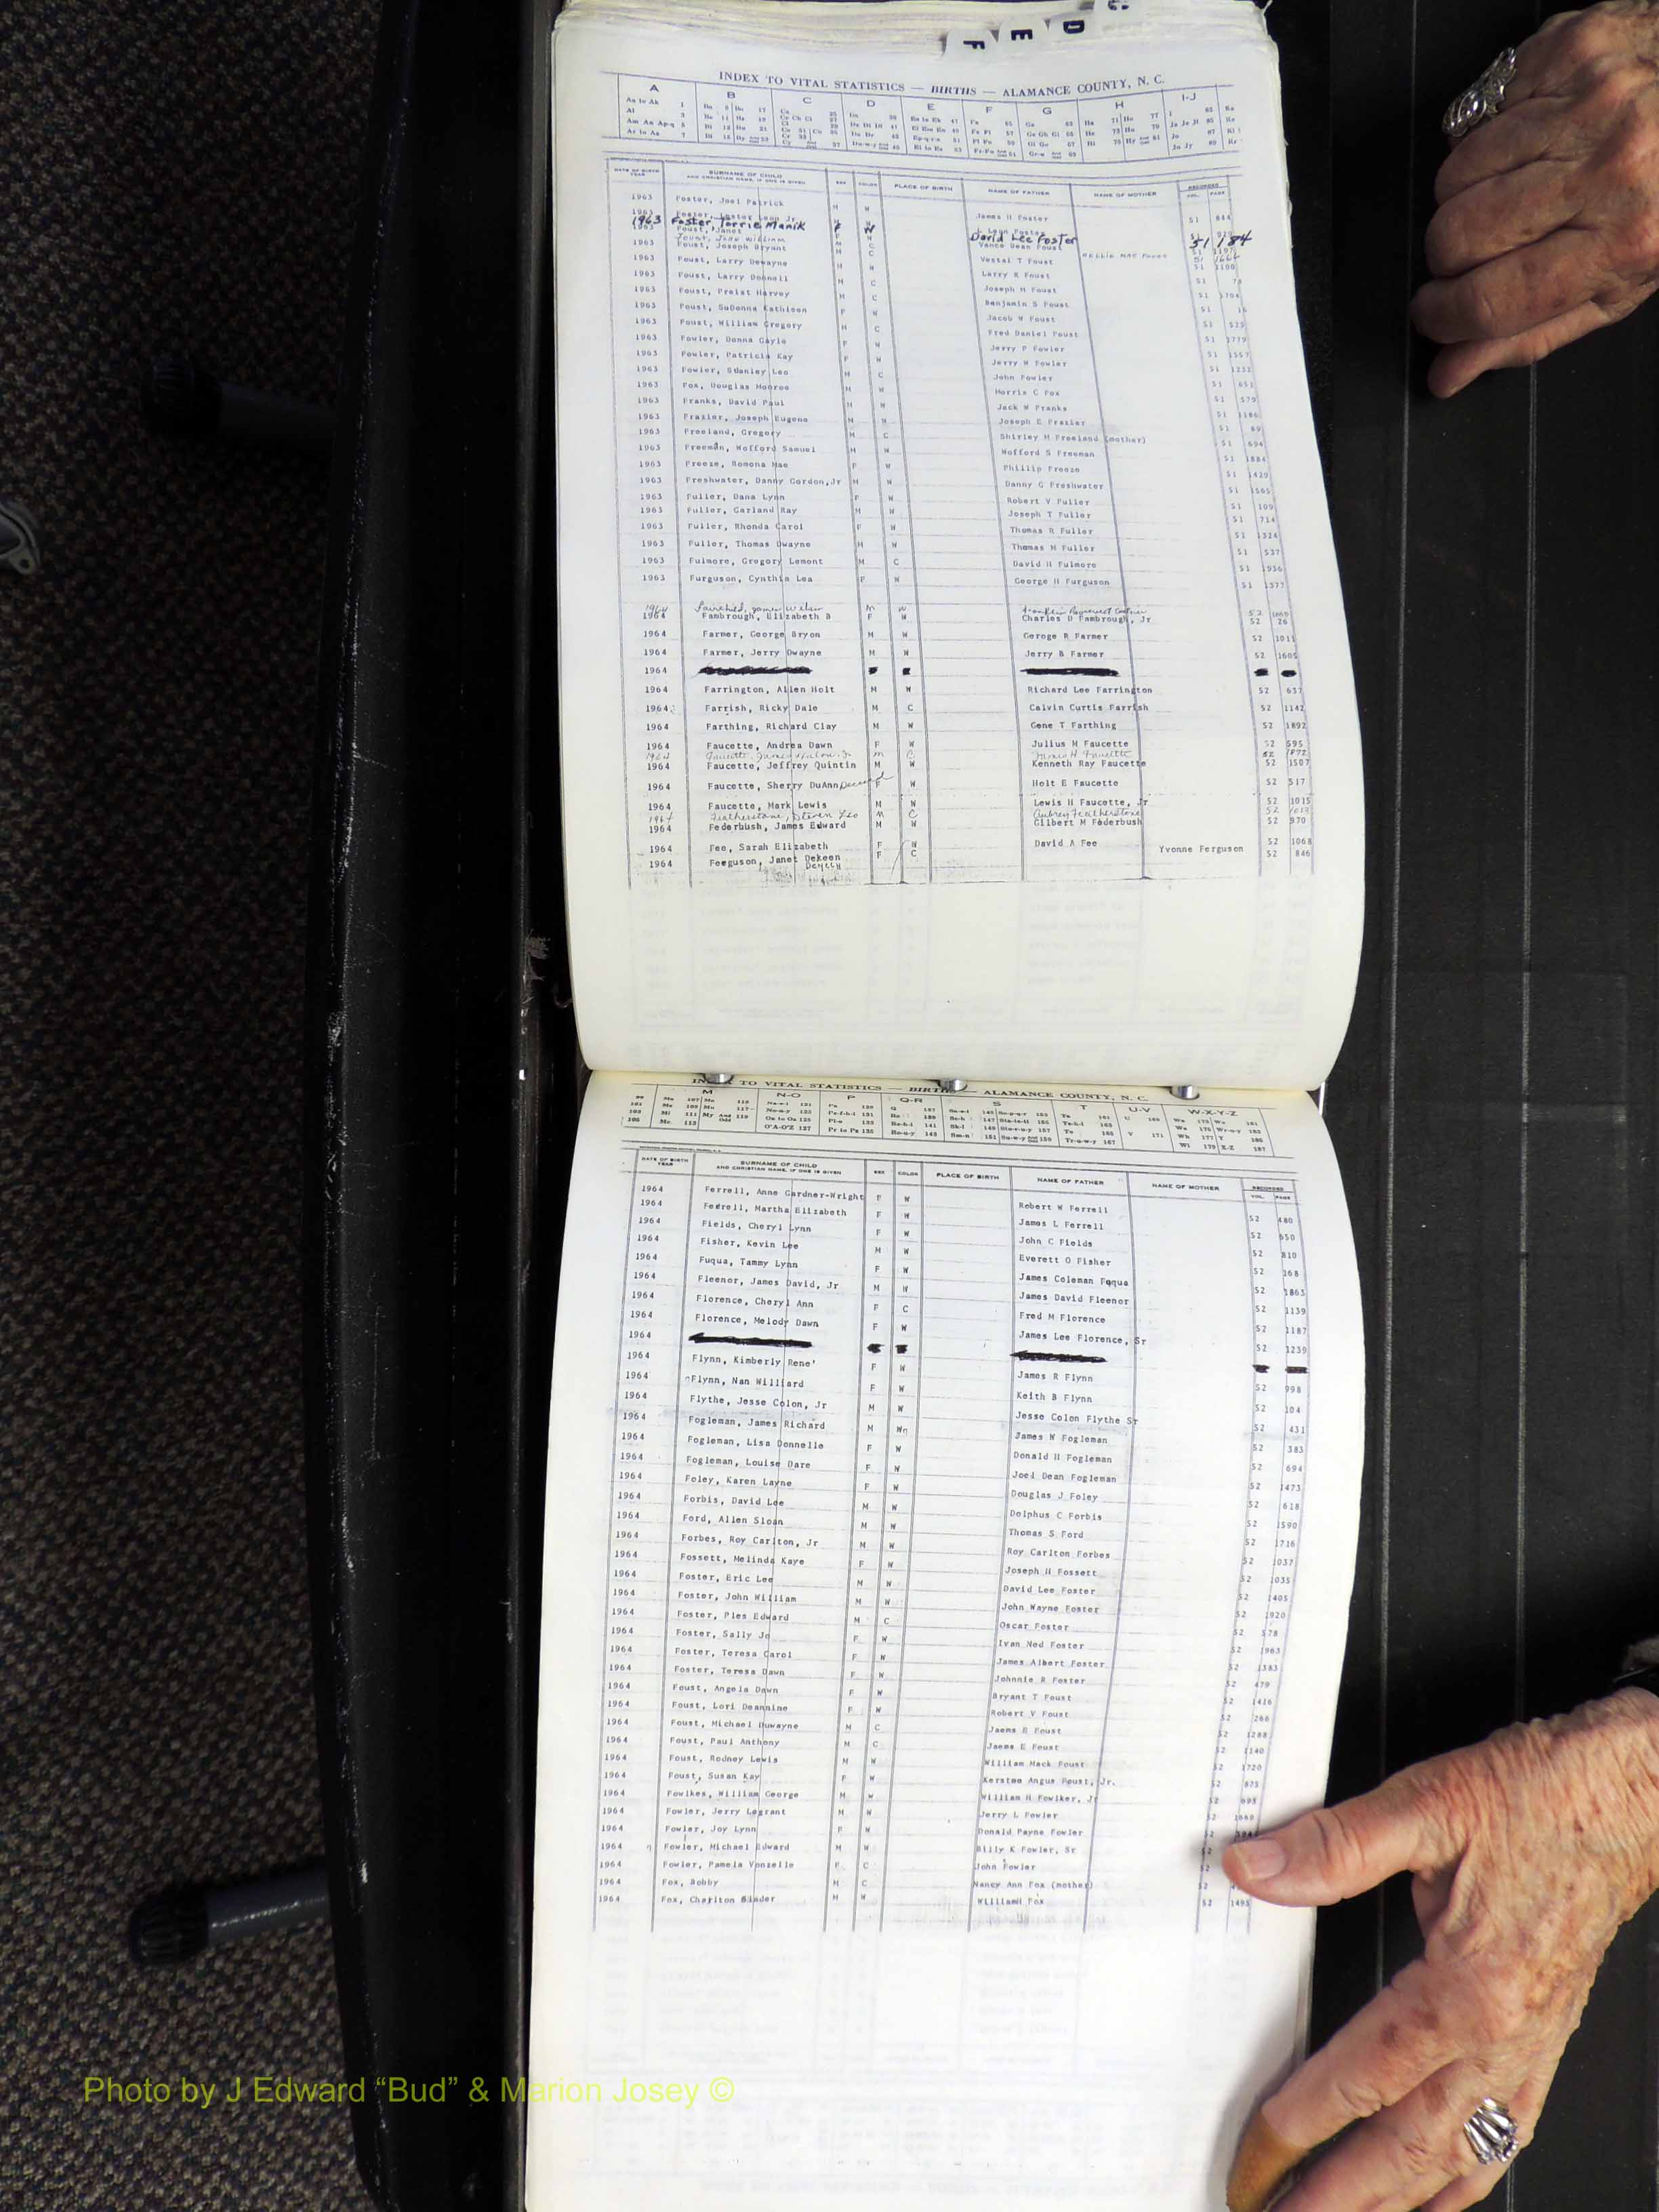 F E D
INDEX TO VITAL STATISTICS — BIRTHS — ALAMANCE COUNTY, N. C.
A B C D E F G H I-J
DATE OF BIRTH YEAR SURNAME OF CHILD AND CHRISTIAN NAME, IF ONE IS GIVEN SEX COLOR PLACE OF BIRTH NAME OF FATHER NAME OF MOTHER RECORDED VOL. PAGE
1963 Foster, Joel Patrick M W James H Foster 51 844
1963 Foster, Lester Leon Jr
1963 Foster Torrie Manik W David Lee Foster 51 184
1963 Foust, Janet Vance Dean Foust
Foust, John William
1963 Foust, Joseph Bryant M C Vestal T Foust 51 1100
1963 Foust, Larry Dewayne M W Larry K Foust 51
1963 Foust, Larry Donnell M C Joseph H Foust 51
1963 Foust, Preist Harvey M C Benjamin S Foust 51 16
1963 Foust, SuDonna Kathleen F W Jacob W Foust 51 525
1963 Foust, William Gregory M C Fred Daniel Foust 51 1779
1963 Fowler, Donna Gayle F W Jerry P Fowler 51 1557
1963 Fowler, Patricia Kay F W Jerry W Fowler 51 1232
1963 Fowler, Stanley Leo M C John Fowler 51 651
1963 Fox, Douglas Monroe M W Morris C Fox 51 579
1963 Franks, David Paul M W Jack W Franks 51 1186
1963 Frazier, Joseph Eugene M W Joseph E Frazier 51 89
1963 Freeland, Gregory M C Shirley M Freeland (mother) 51 694
1963 Freeman, Wofford Samuel M W Wofford S Freeman 51 1884
1963 Freeze, Romona Mae F W Phillip Freeze 51 1429
1963 Freshwater, Danny Gordon,Jr M W Danny G Freshwater 51 1565
1963 Fuller, Dana Lynn F W Robert V Fuller 51 109
1963 Fuller, Garland Ray M W Joseph T Fuller 51 714
1963 Fuller, Rhonda Carol F W Thomas R Fuller 51 1324
1963 Fuller, Thomas Dwayne M W Thomas M Fuller 51 537
1963 Fulmore, Gregory Lemont M C David H Fulmore 51 1936
1963 Furguson, Cynthia Lea F W George H Furguson 51 1377
1964 Fairchild, James Wilson M W Franklin 52
1964 Fambrough, Elizabeth B F W Charles D Fambrough, Jr 52 26
1964 Farmer, George Bryon M W Geroge R Farmer 52 1011
1964 Farmer, Jerry Dwayne M W Jerry B Farmer 52 1605
1964
1964 Farrington, Allen Holt M W Richard Lee Farrington 52 637
1964 Farrish, Ricky Dale M C Calvin Curtis Farrish 52 1142
1964 Farthing, Richard Clay M W Gene T Farthing 52 1892
1964 Faucette, Andrea Dawn F W Julius M Faucette 52 595
1964 Faucette, James Jr M C James H Faucette 52 1872
1964 Faucette, Jeffrey Quintin M W Kenneth Ray Faucette 52 1507
1964 Faucette, Sherry DuAnn Deceased F W Holt E Faucette 52 517
1964 Faucette, Mark Lewis M W Lewis H Faucette, Jr 52 1015
1964 Featherstone, Steven Leo M C Aubrey Featherstone 52 1013
1964 Federbush, James Edward M W Gilbert M Federbush 52 970
1964 Fee, Sarah Elizabeth F W David A Fee 52 1068
1964 Feeguson, Janet Dekeen F C Yvonne Ferguson 52 846
INDEX TO VITAL STATISTICS — BIRTHS — ALAMANCE COUNTY, N. C.
M N-O P Q-R S T U-V W-X-Y-Z
DATE OF BIRTH YEAR SURNAME OF CHILD AND CHRISTIAN NAME, IF ONE IS GIVEN SEX COLOR PLACE OF BIRTH NAME OF FATHER NAME OF MOTHER RECORDED VOL. PAGE
1964 Ferrell, Anne Gardner-Wright F W Robert W Ferrell 52 480
1964 Ferrell, Martha Elizabeth F W James L Ferrell 52 650
1964 Fields, Cheryl Lynn F W John C Fields 52 810
1964 Fisher, Kevin Lee M W Everett O Fisher 52 168
1964 Fuqua, Tammy Lynn F W James Coleman Fuqua 52 1863
1964 Fleenor, James David, Jr M W James David Fleenor 52 1139
1964 Florence, Cheryl Ann F C Fred M Florence 52 1187
1964 Florence, Melody Dawn F W James Lee Florence, Sr 52 1239
1964
1964 Flynn, Kimberly Rene' F W James R Flynn 52 998
1964 Flynn, Nan Williard F W Keith B Flynn 52 104
1964 Flythe, Jesse Colon, Jr M W Jesse Colon Flythe Sr 52 431
1964 Fogleman, James Richard M W James W Fogleman 52 383
1964 Fogleman, Lisa Donnelle F W Donald H Fogleman 52 694
1964 Fogleman, Louise Dare F W Joel Dean Fogleman 52 1473
1964 Foley, Karen Layne F W Douglas J Foley 52 618
1964 Forbis, David Lee M W Dolphus C Forbis 52 1590
1964 Ford, Allen Sloan M W Thomas S Ford 52 1716
1964 Forbes, Roy Carlton, Jr M W Roy Carlton Forbes 52 1037
1964 Fossett, Melinda Kaye F W Joseph H Fossett 52 1035
1964 Foster, Eric Lee M W David Lee Foster 52 1405
1964 Foster, John William M W John Wayne Foster 52 1920
1964 Foster, Ples Edward M C Oscar Foster 52 578
1964 Foster, Sally Jo F W Ivan Ned Foster 52 1963
1964 Foster, Teresa Carol F W James Albert Foster 52 1383
1964 Foster, Teresa Dawn F W Johnnie R Foster 52 479
1964 Foust, Angela Dawn F W Bryant T Foust 52 1416
1964 Foust, Lori Deannine F W Robert V Foust 52 266
1964 Foust, Michael Duwayne M C Jaems E Foust 52 1288
1964 Foust, Paul Anthony M C Jaems E Foust 52 1140
1964 Foust, Rodney Lewis M W William Mack Foust 52 1720
1964 Foust, Susan Kay F W Kerstee Angus Foust, Jr. 52 875
1964 Fowlkes, William George M W William H Fowlker, Jr 52 695
1964 Fowler, Jerry Legrant M W Jerry L Fowler 52
1964 Fowler, Joy Lynn F W Donald Payne Fowler 52
1964 Fowler, Michael Edward M W Billy K Fowler, Sr 52
1964 Fowler, Pamela Vonzelle F C John Fowler 52
1964 Fox, Bobby M C Nancy Ann Fox (mother) 52
1964 Fox, Charlton Binder M W WilliamH Fox 52 1495
Photo by J Edward “Bud” & Marion Josey ©